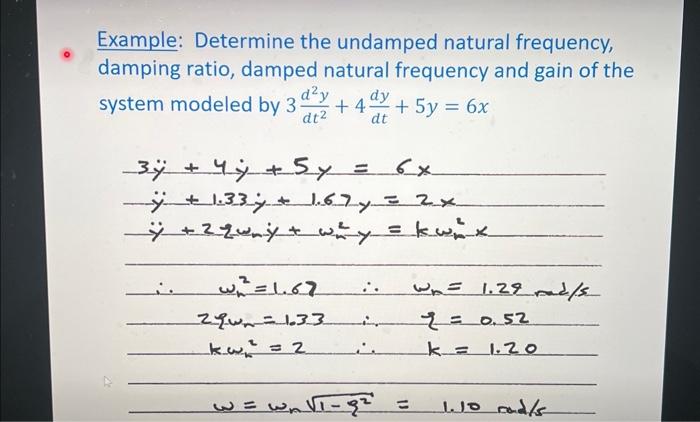 Example: Determine the undamped natural frequency,
damping ratio, damped natural frequency and gain of the
system modeled by 3 d²y/dt² + 4 dy/dt + 5y = 6x
3ÿ + 4ẏ + 5y = 6x
ÿ + 1.33ẏ + 1.67y = 2x
ÿ + 2ζωₙẏ + ωₙ²y = kωₙ²x
∴ ωₙ² = 1.67 ∴ ωₙ = 1.29 rad/s
2ζωₙ = 1.33 ∴ ζ = 0.52
kωₙ² = 2 ∴ k = 1.20
ω = ωₙ√(1-ζ²) = 1.10 rad/s